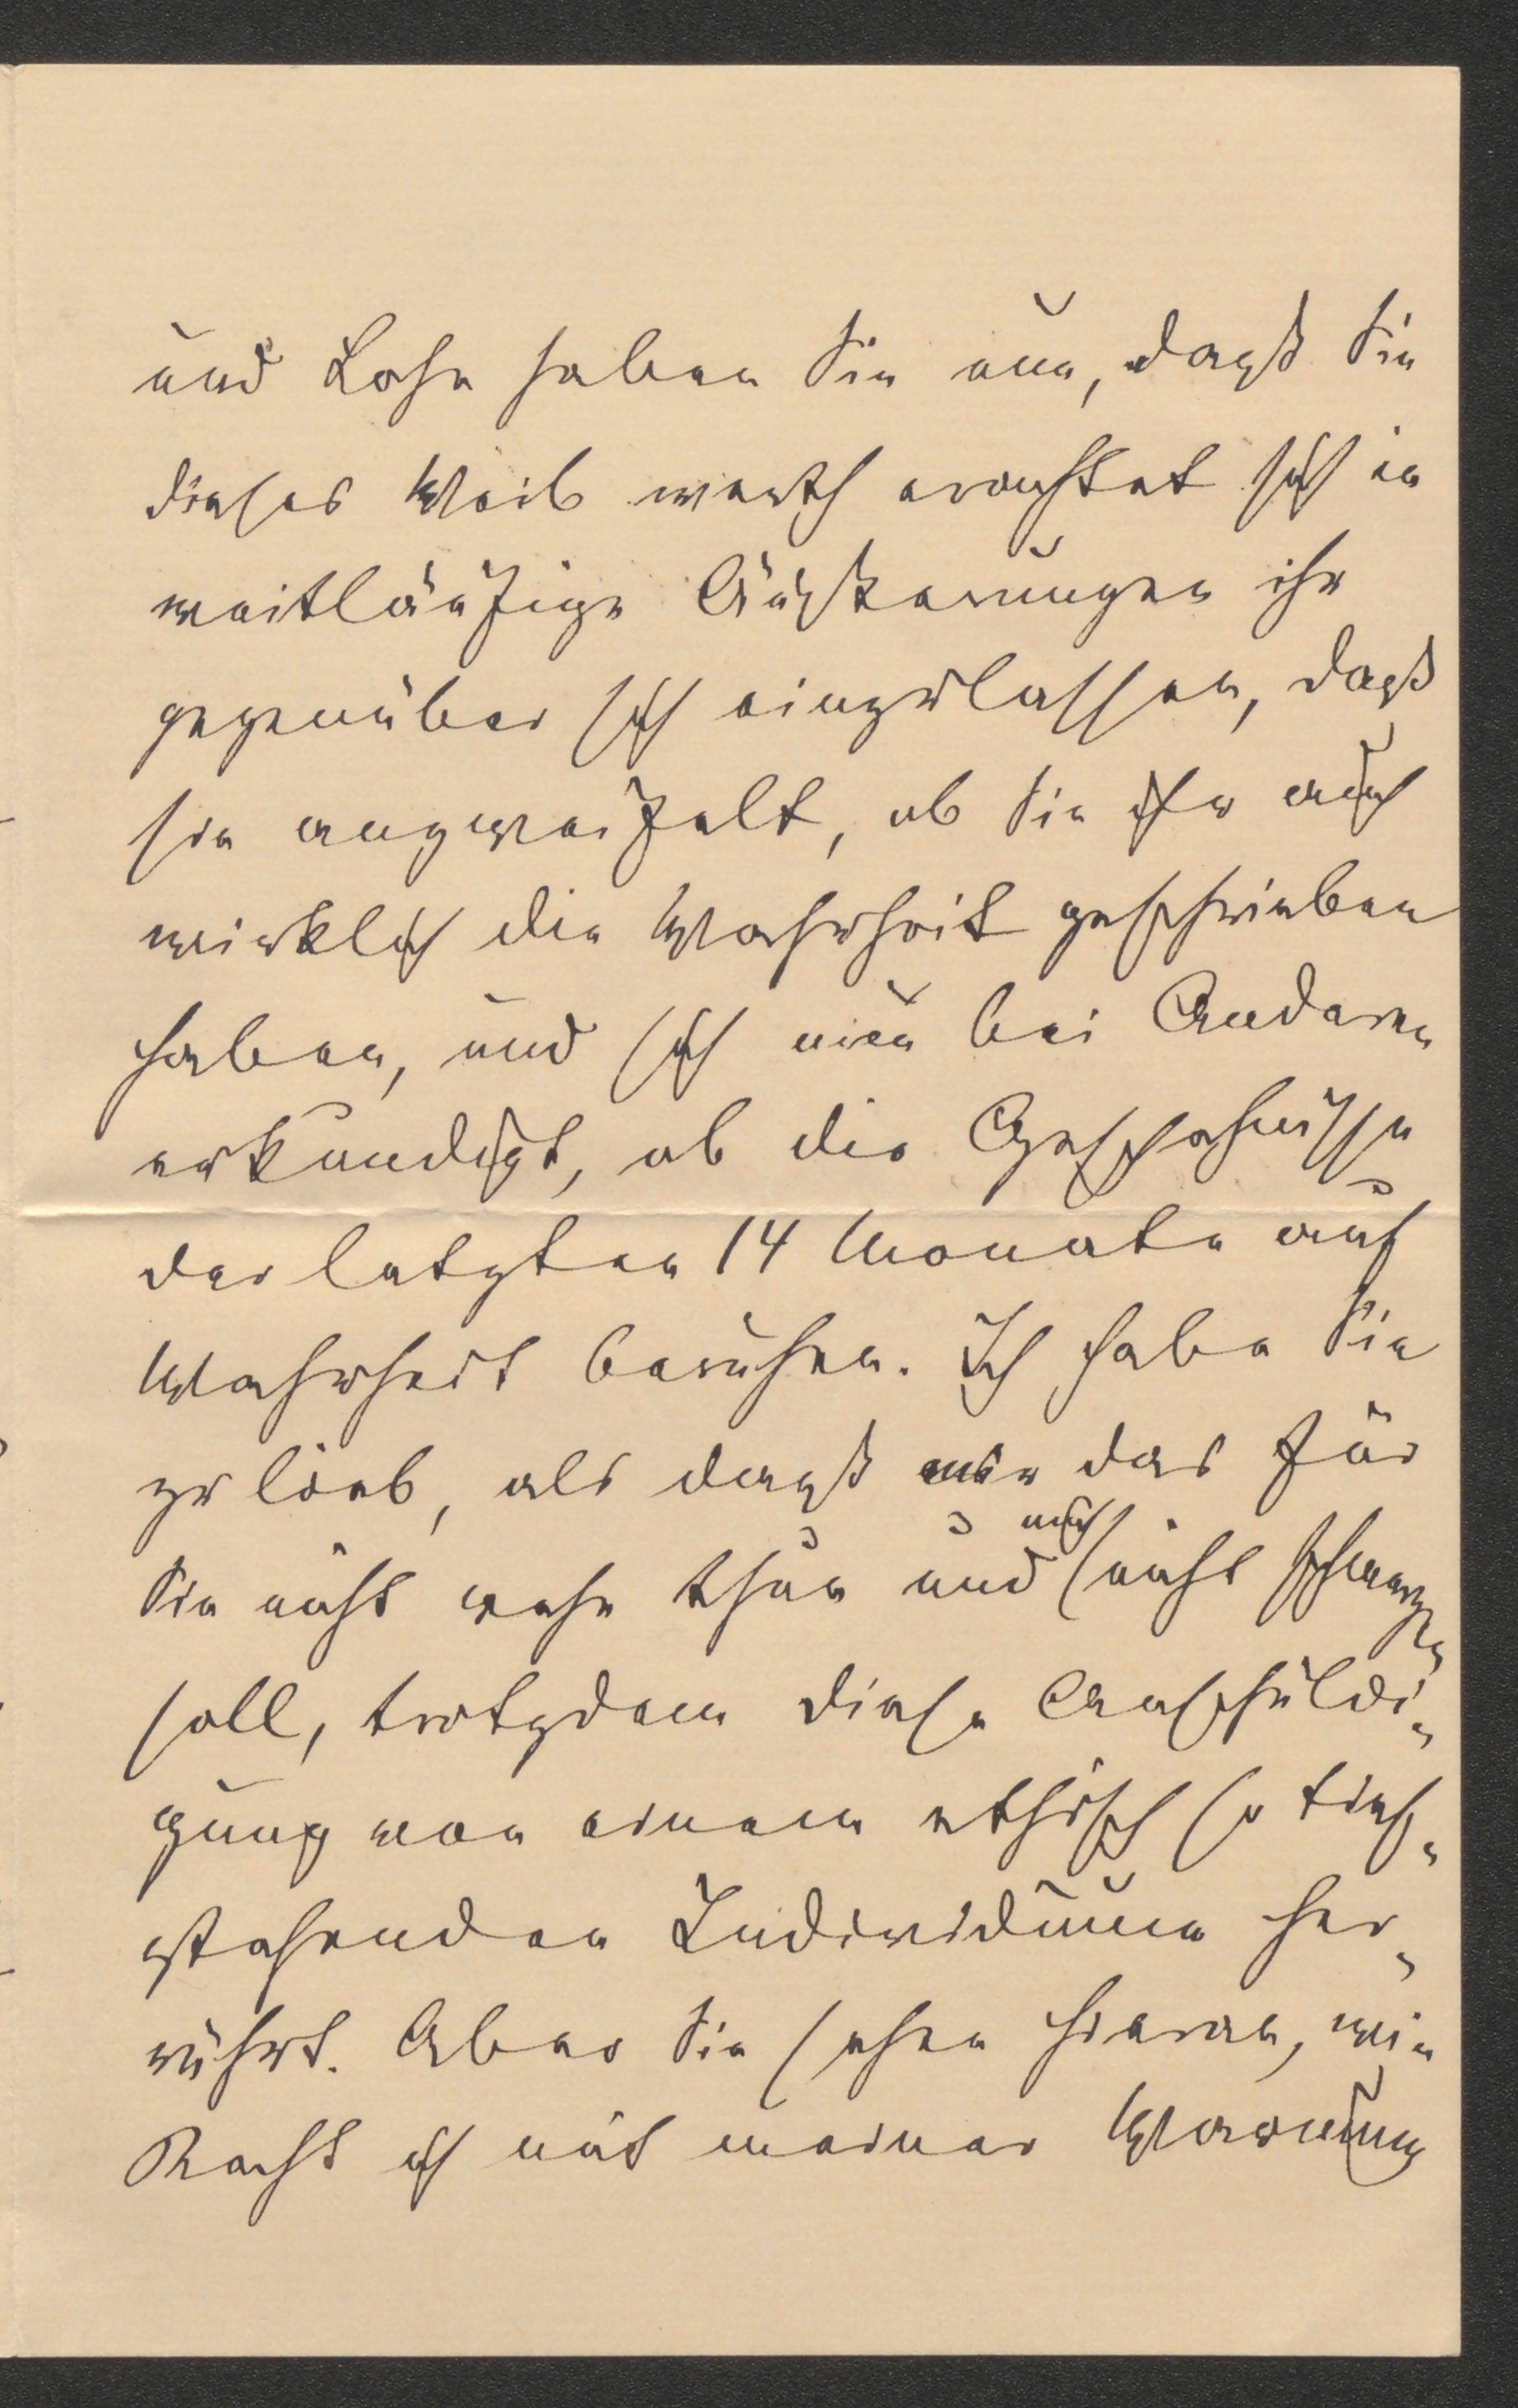 und Lohn haben Sie nun, dasß Sie
dieses Weib werth erachtet sich in
weitläufige Äußerungen ihr
gegenüber sich einzulassen, daß
sie anzweifelt, ob Sie ihr auch
wirklich die Wahrheit geschrieben
haben, und sich nun bei Anderen
erkundigt, ob die Geschehnisse
der letzten 14 Monate auf
Wahrheit beruhen. Ich habe Sie
zu lieb, als dasß mir das für
Sie nicht wehe thun und mich nicht schmerzen
soll, trotzdem diese Anschuldi-
gung von einem ethisch so tief-
stehenden Individuum her-
rührt. Aber Sie sehen hieran, wie
Recht ich mit meiner Warnung